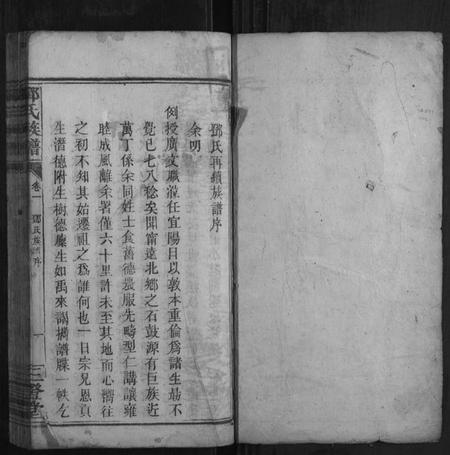 鄧氏再續族譜序
余明
例授廣文職蒞任宜陽日以敦本重倫為諸生勗不
覺已七八稔矣聞甯邑北鄉之石鼓源有巨族近
萬丁係余同姓士食舊德農服先疇型仁講讓雍
睦成風離余署僅六十里許未至其地而心嚮往
之初不知其始遷祖之為誰何也一日宗兄恩貢
生潛德附生樹德廩生如禹來謁攜譜牒一帙乞
鄧氏族譜
卷一
鄧氏族譜序
一
三登堂